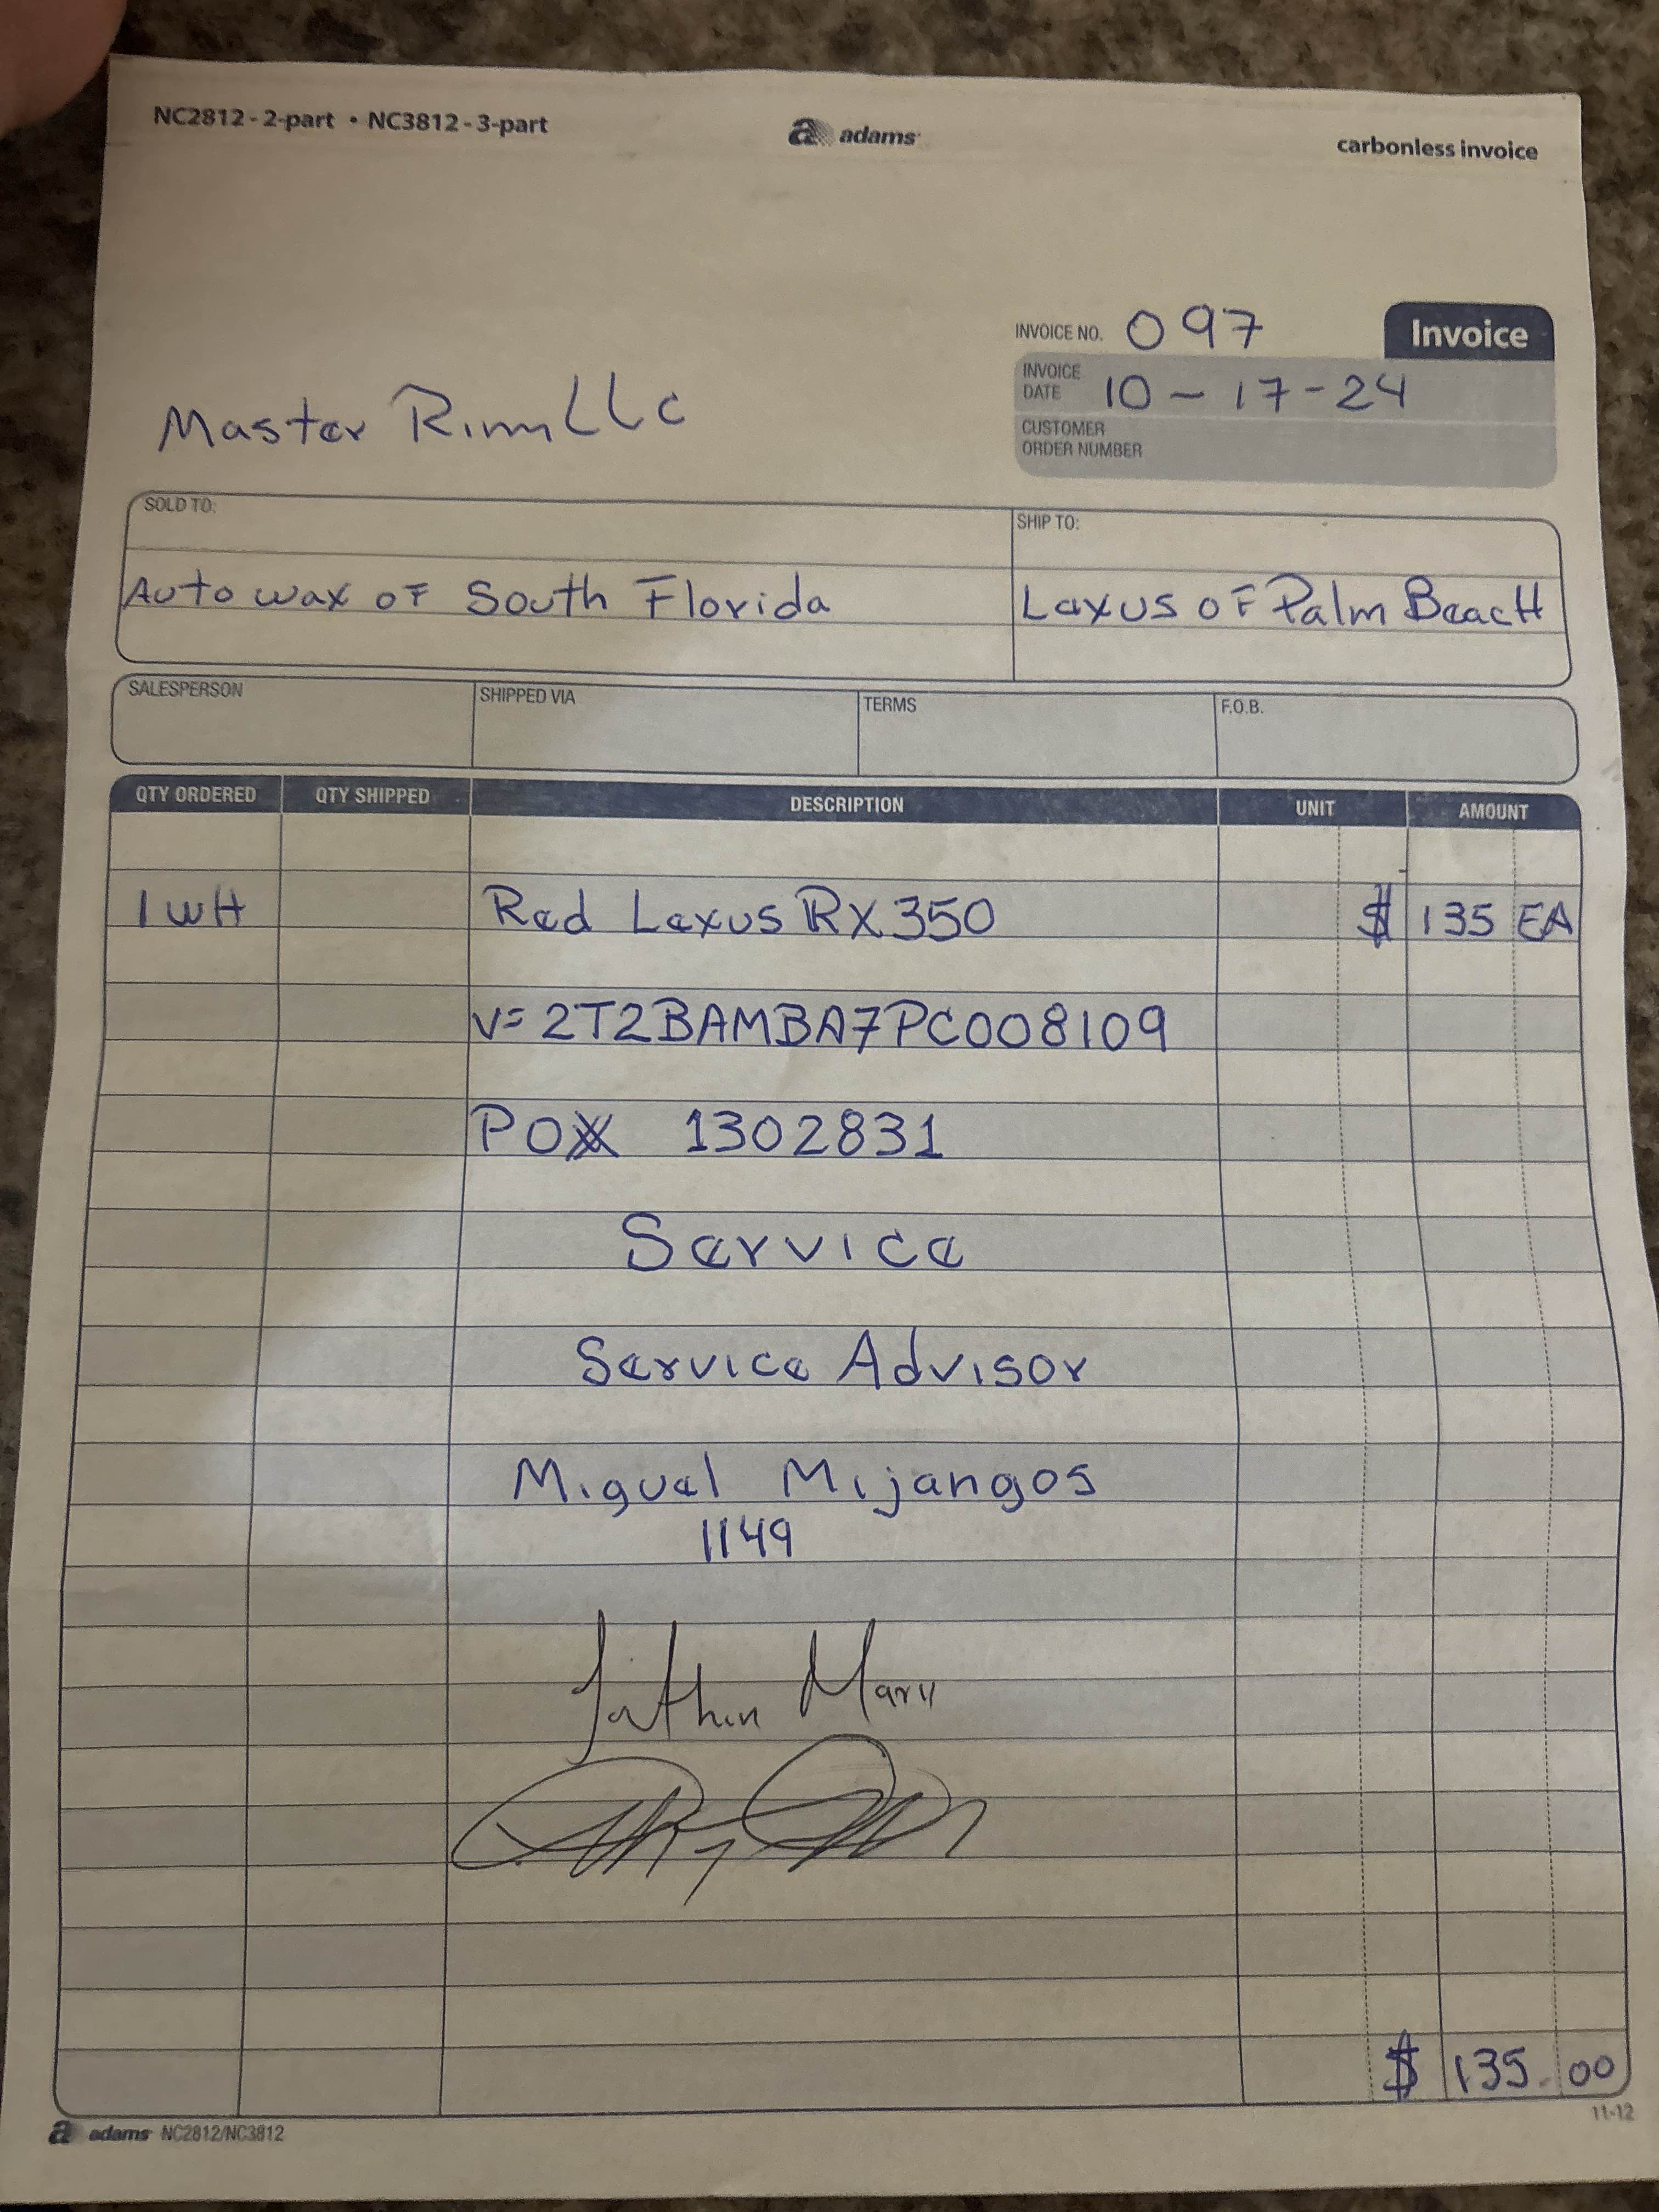 NC2812 - 2-part • NC3812 - 3-part
adams
carbonless invoice
INVOICE NO. 097
Invoice
INVOICE DATE 10-17-24
CUSTOMER ORDER NUMBER
Master Rim LLC
SOLD TO:
SHIP TO:
Auto wax of South Florida
Lexus of Palm Beach
SALESPERSON SHIPPED VIA TERMS F.O.B.
QTY ORDERED QTY SHIPPED DESCRIPTION UNIT AMOUNT
1 WH Red Lexus RX350 $ 135 EA
V=2T2BAMBA7PC008109
PO 1302831
Service
Service Advisor
Miguel Mijangos
1149
$ 135.00
11-12
adams NC2812/NC3812